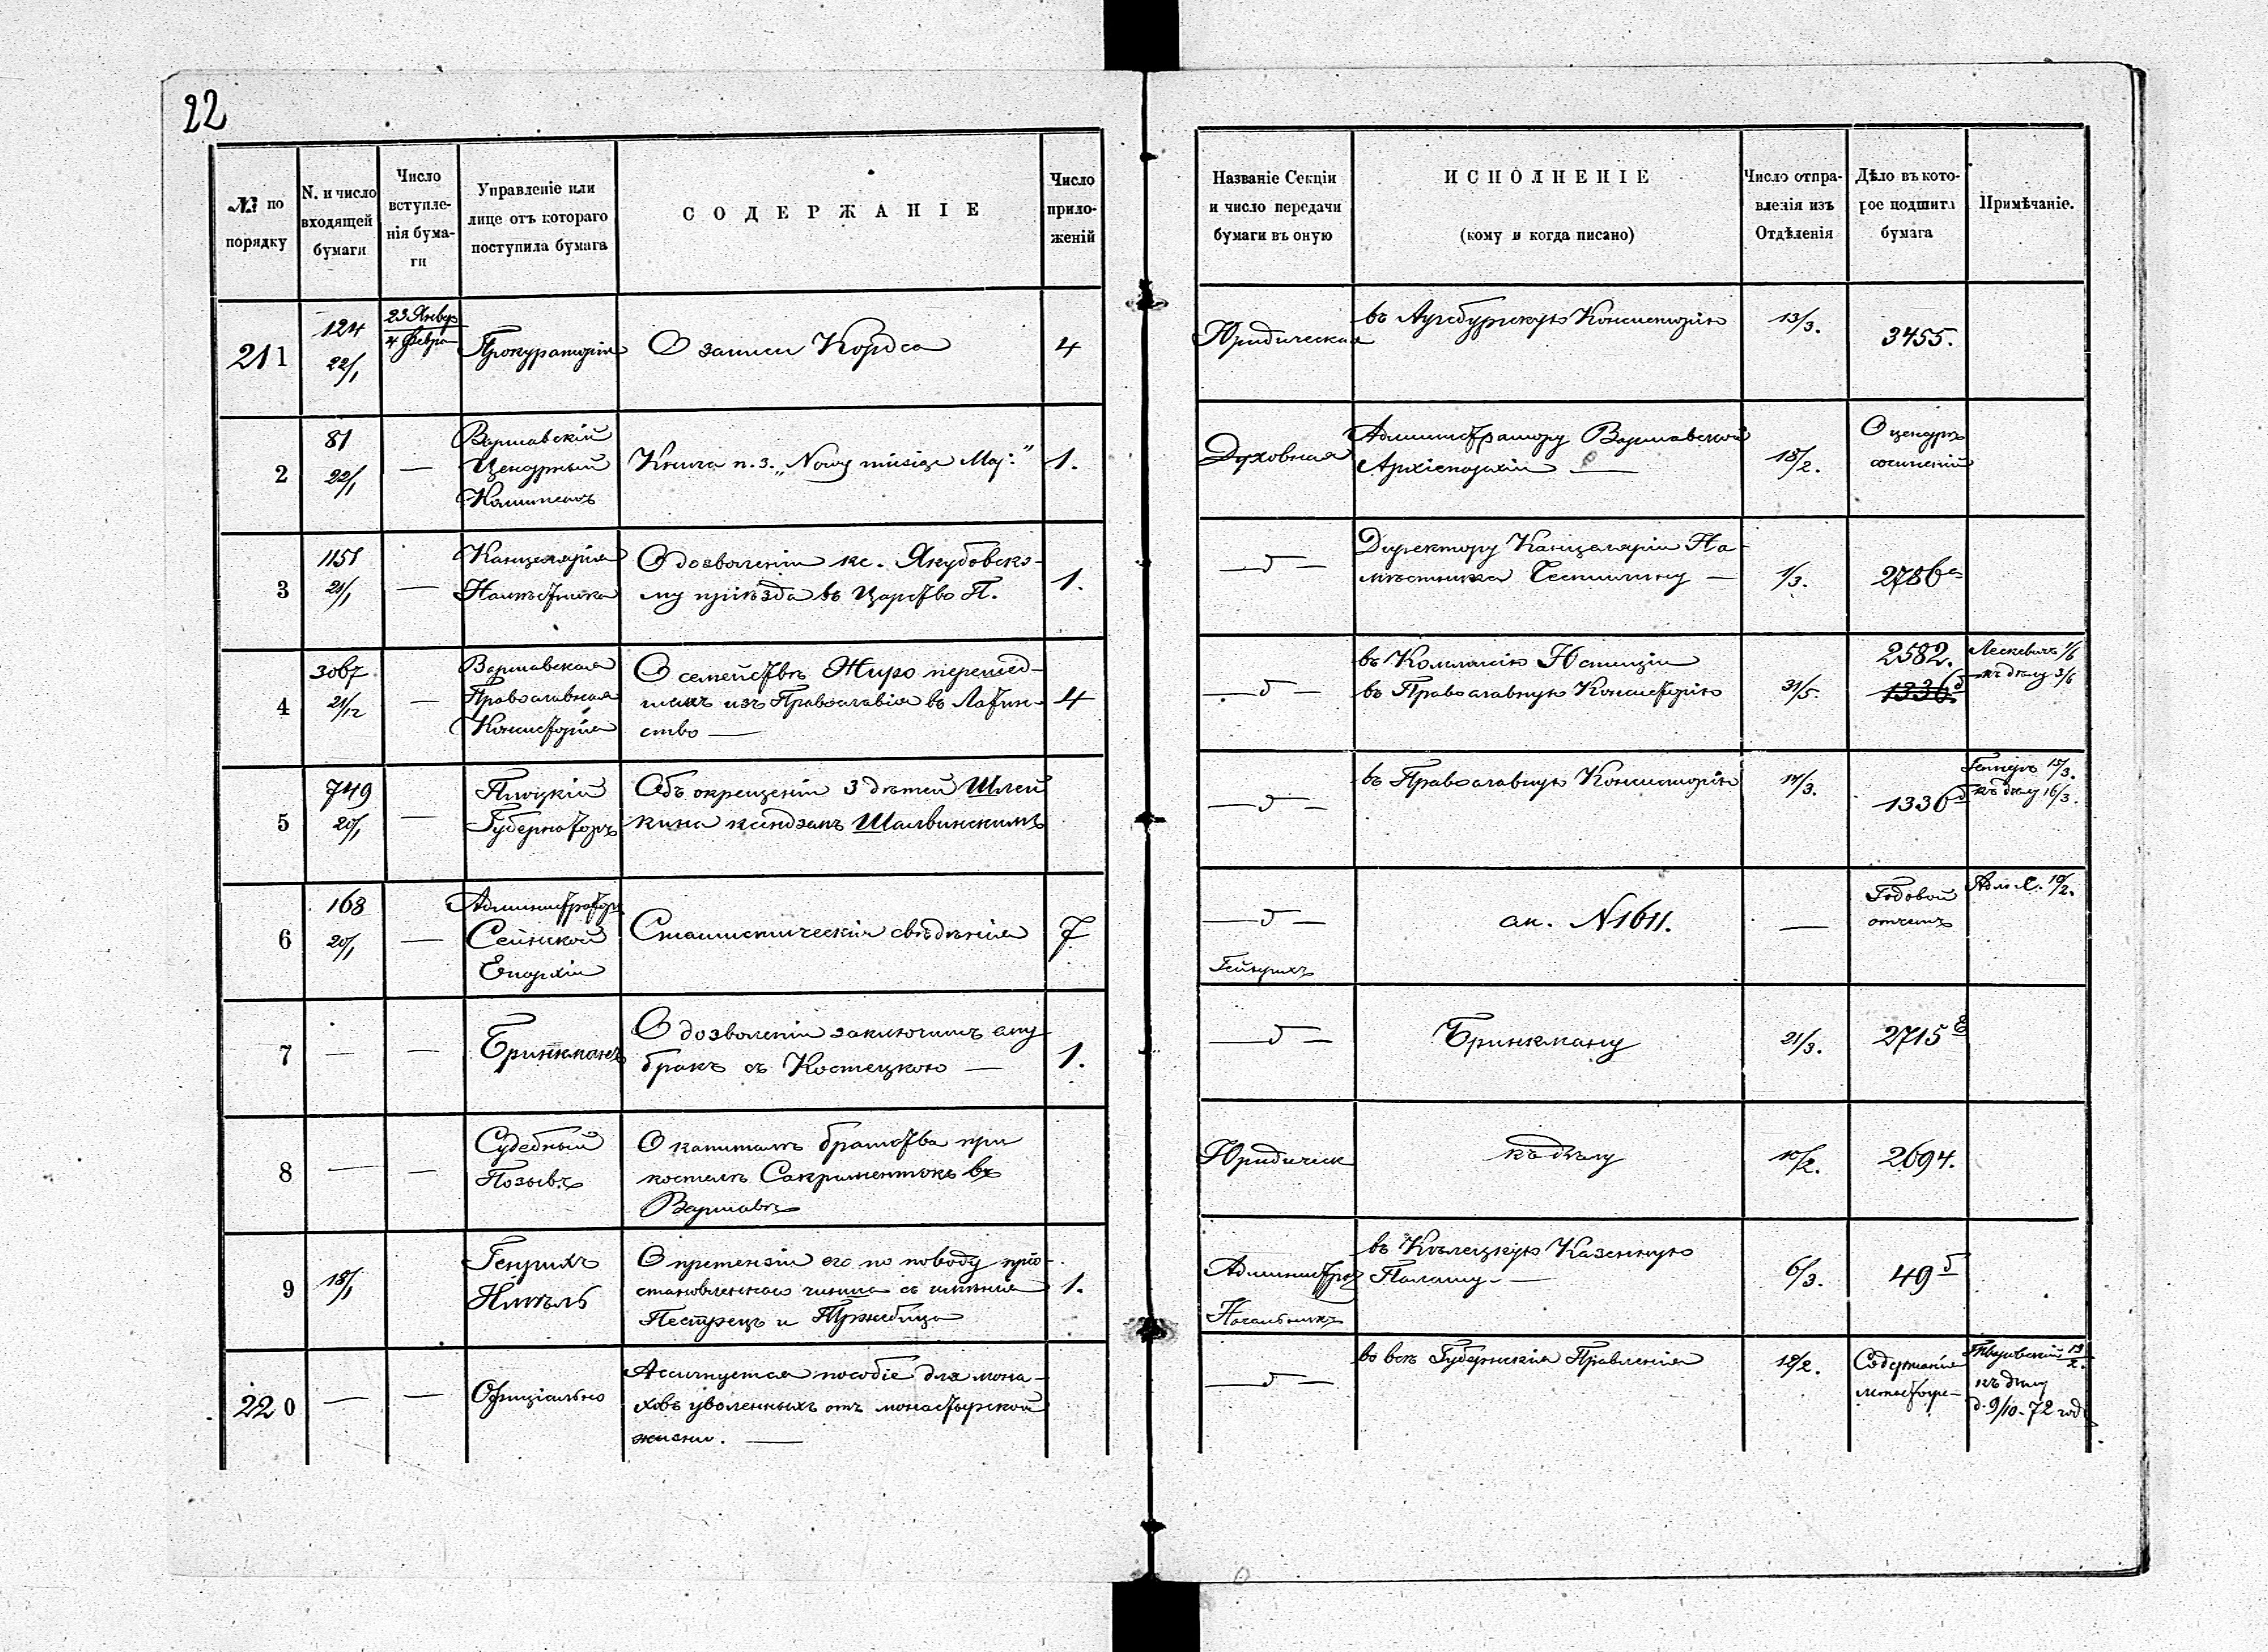 22
№ по порядку
N. и число входящей бумаги
Число вступленія бумаги
Управленіе или лице отъ котораго поступила бумага
СОДЕРЖАНІЕ
Число приложеній
Названіе Секціи и число передачи бумаги въ оную
ИСПОЛНЕНІЕ
(кому и когда писано)
Число отправленія изъ Отдѣленія
Дѣло въ которое подшита бумага
Примѣчаніе.
211
124
22/1
23 Январ
4 Февра
Прокураторія
О записи Кордса
4
Юридическая
въ Аугсбургскую Консисторію
13/3.
3455.
2
81
22/1
—
Варшавскій
Цензурный
Комитетъ
Книга п. з. „Nowy miesiąc Maj:"
1.
Духовная
Администратору Варшавской
Архіепархіи —
18/2.
О цензурѣ
сочиненій
3
1151
21/1
—
Канцелярія
Намѣстника
О дозволеніи кс. Якубовско-
му пріѣзда въ Царство П.
1.
— д —
Директору Канцеляріи На-
мѣстника —
1/3.
2786
4
3067
21/12
—
Варшавская
Православная
Консисторія
О семействѣ Жиро перешед-
шемъ изъ Православія въ Латин-
ство —
4
— д —
въ Коммисію Юстиціи
въ Православную Консисторію
31/5.
2582.
1336.
Лескевичъ 1/6
къ дѣлу 3/6
5
749
20/1
—
Плоцкій
Губернаторъ
Объ окрещеніи 3 дѣтей Шлей
кина ксендзомъ Шалвинскимъ
— д —
въ Православную Консисторію
14/3.
1336 д
15/3.
къ дѣлу 16/3.
6
168
20/1
—
Администраторъ
Сейнской
Епархіи
Статистическія свѣдѣнія
7
— д —
Гейнрихъ
ак. N 1611.
—
Годовой
отчетъ
19/2.
7
—
—
Бринкманъ
О дозволеніи заключить ему
бракъ съ Костецкою —
1.
— д —
Бринкману
21/3.
2715 Е
8
—
—
Судебный
Позывъ
О капиталѣ братства при
костелѣ Сакраментокъ въ
Варшавѣ
Юридическ
къ дѣлу
10/2.
2694.
9
18/1
Генрихъ
О претензіи его по поводу пріо-
становленнаго чинша съ имѣнія
Пестрецъ и Тржебица
1.
Администра
Начальникъ
въ Кѣлецкую Казенную
Палату. —
6/3.
49 б
220
—
—
Офиціально
Ассигнуется пособіе для мона-
ховъ уволенныхъ отъ монастырской
жизни. —
— д —
во всѣ Губернскія Правленія
12/2.
Содержаніе
монастыре-
19/2.
къ дѣлу
д. 9/10 - 72 года